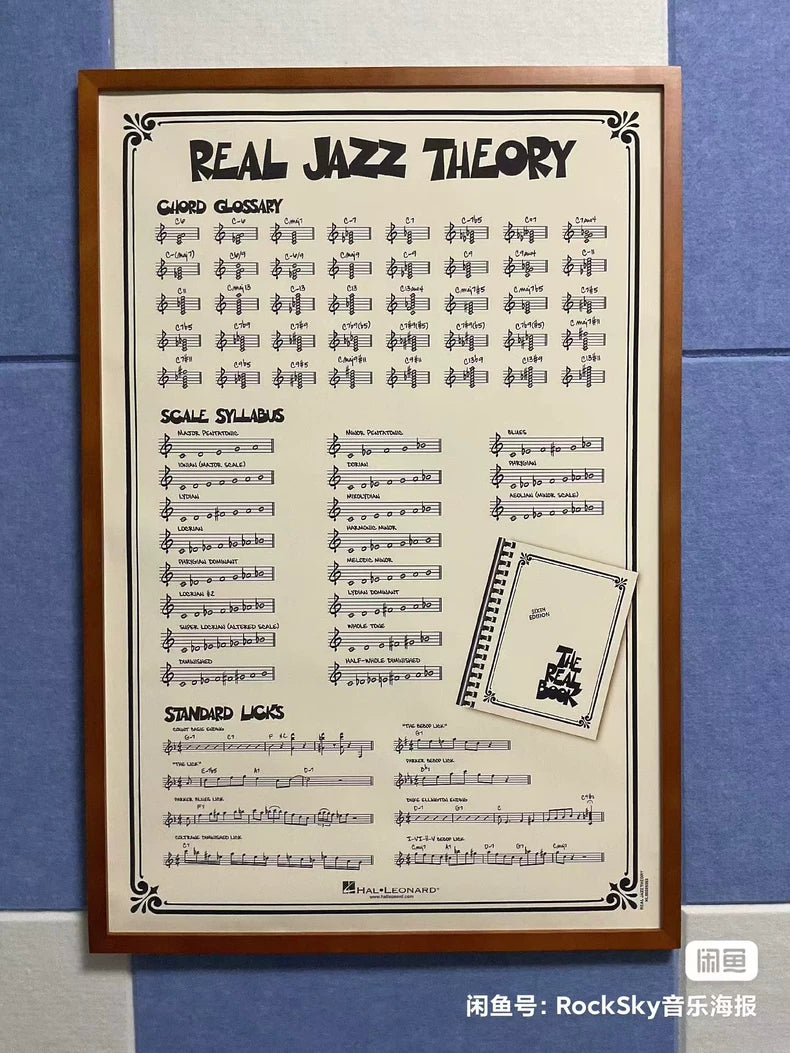 REAL JAZZ THEORY
CHORD GLOSSARY
C6 C-6 Cmaj7 C-7 C7 C-7b5 C°7 C7sus4
C-(maj7) C6/9 C-6/9 Cmaj9 C-9 C9 C9sus4 C-11
C11 Cmaj13 C-13 C13 C13sus4 Cmaj7#5 Cmaj7b5 C7#5
C7b5 C7b9 C7#9 C7b9(b5) C7#9(#5) C7#9(b5) C7b9(#5) Cmaj7#11
C7#11 C9b5 C9#5 Cmaj9#11 C9#11 C13b9 C13#9 C13#11
SCALE SYLLABUS
MAJOR PENTATONIC MINOR PENTATONIC BLUES
IONIAN (MAJOR SCALE) DORIAN PHRYGIAN
LYDIAN MIXOLYDIAN AEOLIAN (MINOR SCALE)
LOCRIAN HARMONIC MINOR
PHRYGIAN DOMINANT MELODIC MINOR
LOCRIAN #2 LYDIAN DOMINANT
SUPER LOCRIAN (ALTERED SCALE) WHOLE TONE
DIMINISHED HALF-WHOLE DIMINISHED
SIXTH
EDITION
THE
REAL
BOOK
STANDARD LICKS
COUNT BASIE ENDING "THE BEBOP LICK"
G-7 C7 F G7
"THE LICK" PARKER BEBOP LICK
E-7b5 A7 D-7
PARKER BLUES LICK DUKE ELLINGTON ENDING
F7 D-7 G7 C
COLTRANE DIMINISHED LICK I-VI-II-V BEBOP LICK
C7 Cmaj7 A7 D-7 G7 Cmaj7
HAL•LEONARD®
www.halleonard.com
REAL JAZZ THEORY
闲鱼
闲鱼号：RockSky音乐海报